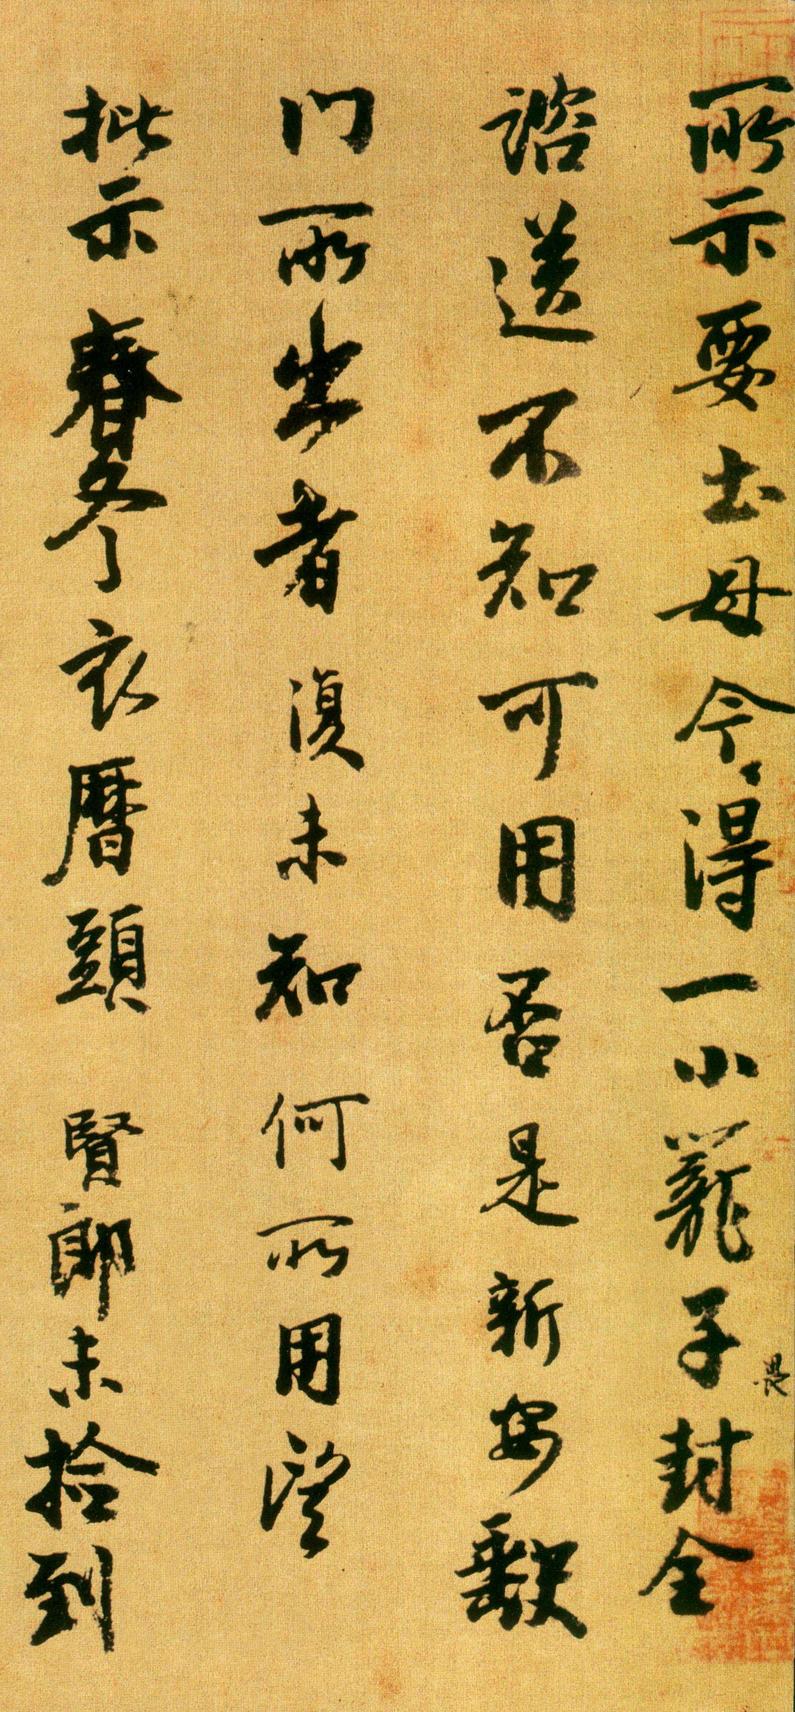 所示要土母今得一小籠子封全
畏
諮送不知可用否是新安缺
門所出者復未知何所用望
批示春冬衣曆頭賢郎未撿到